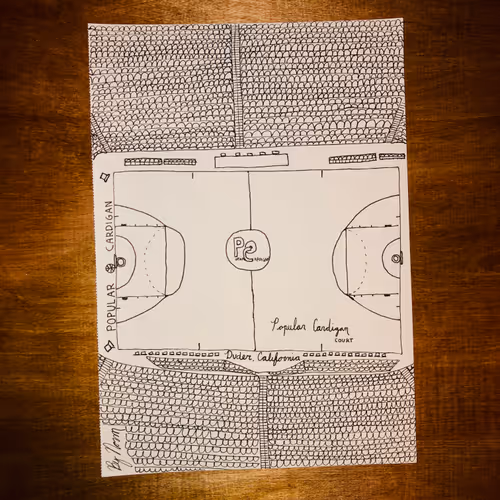 POPULAR CARDIGAN
PC
Popular Cardigan
COURT
Duder, California
By Norm